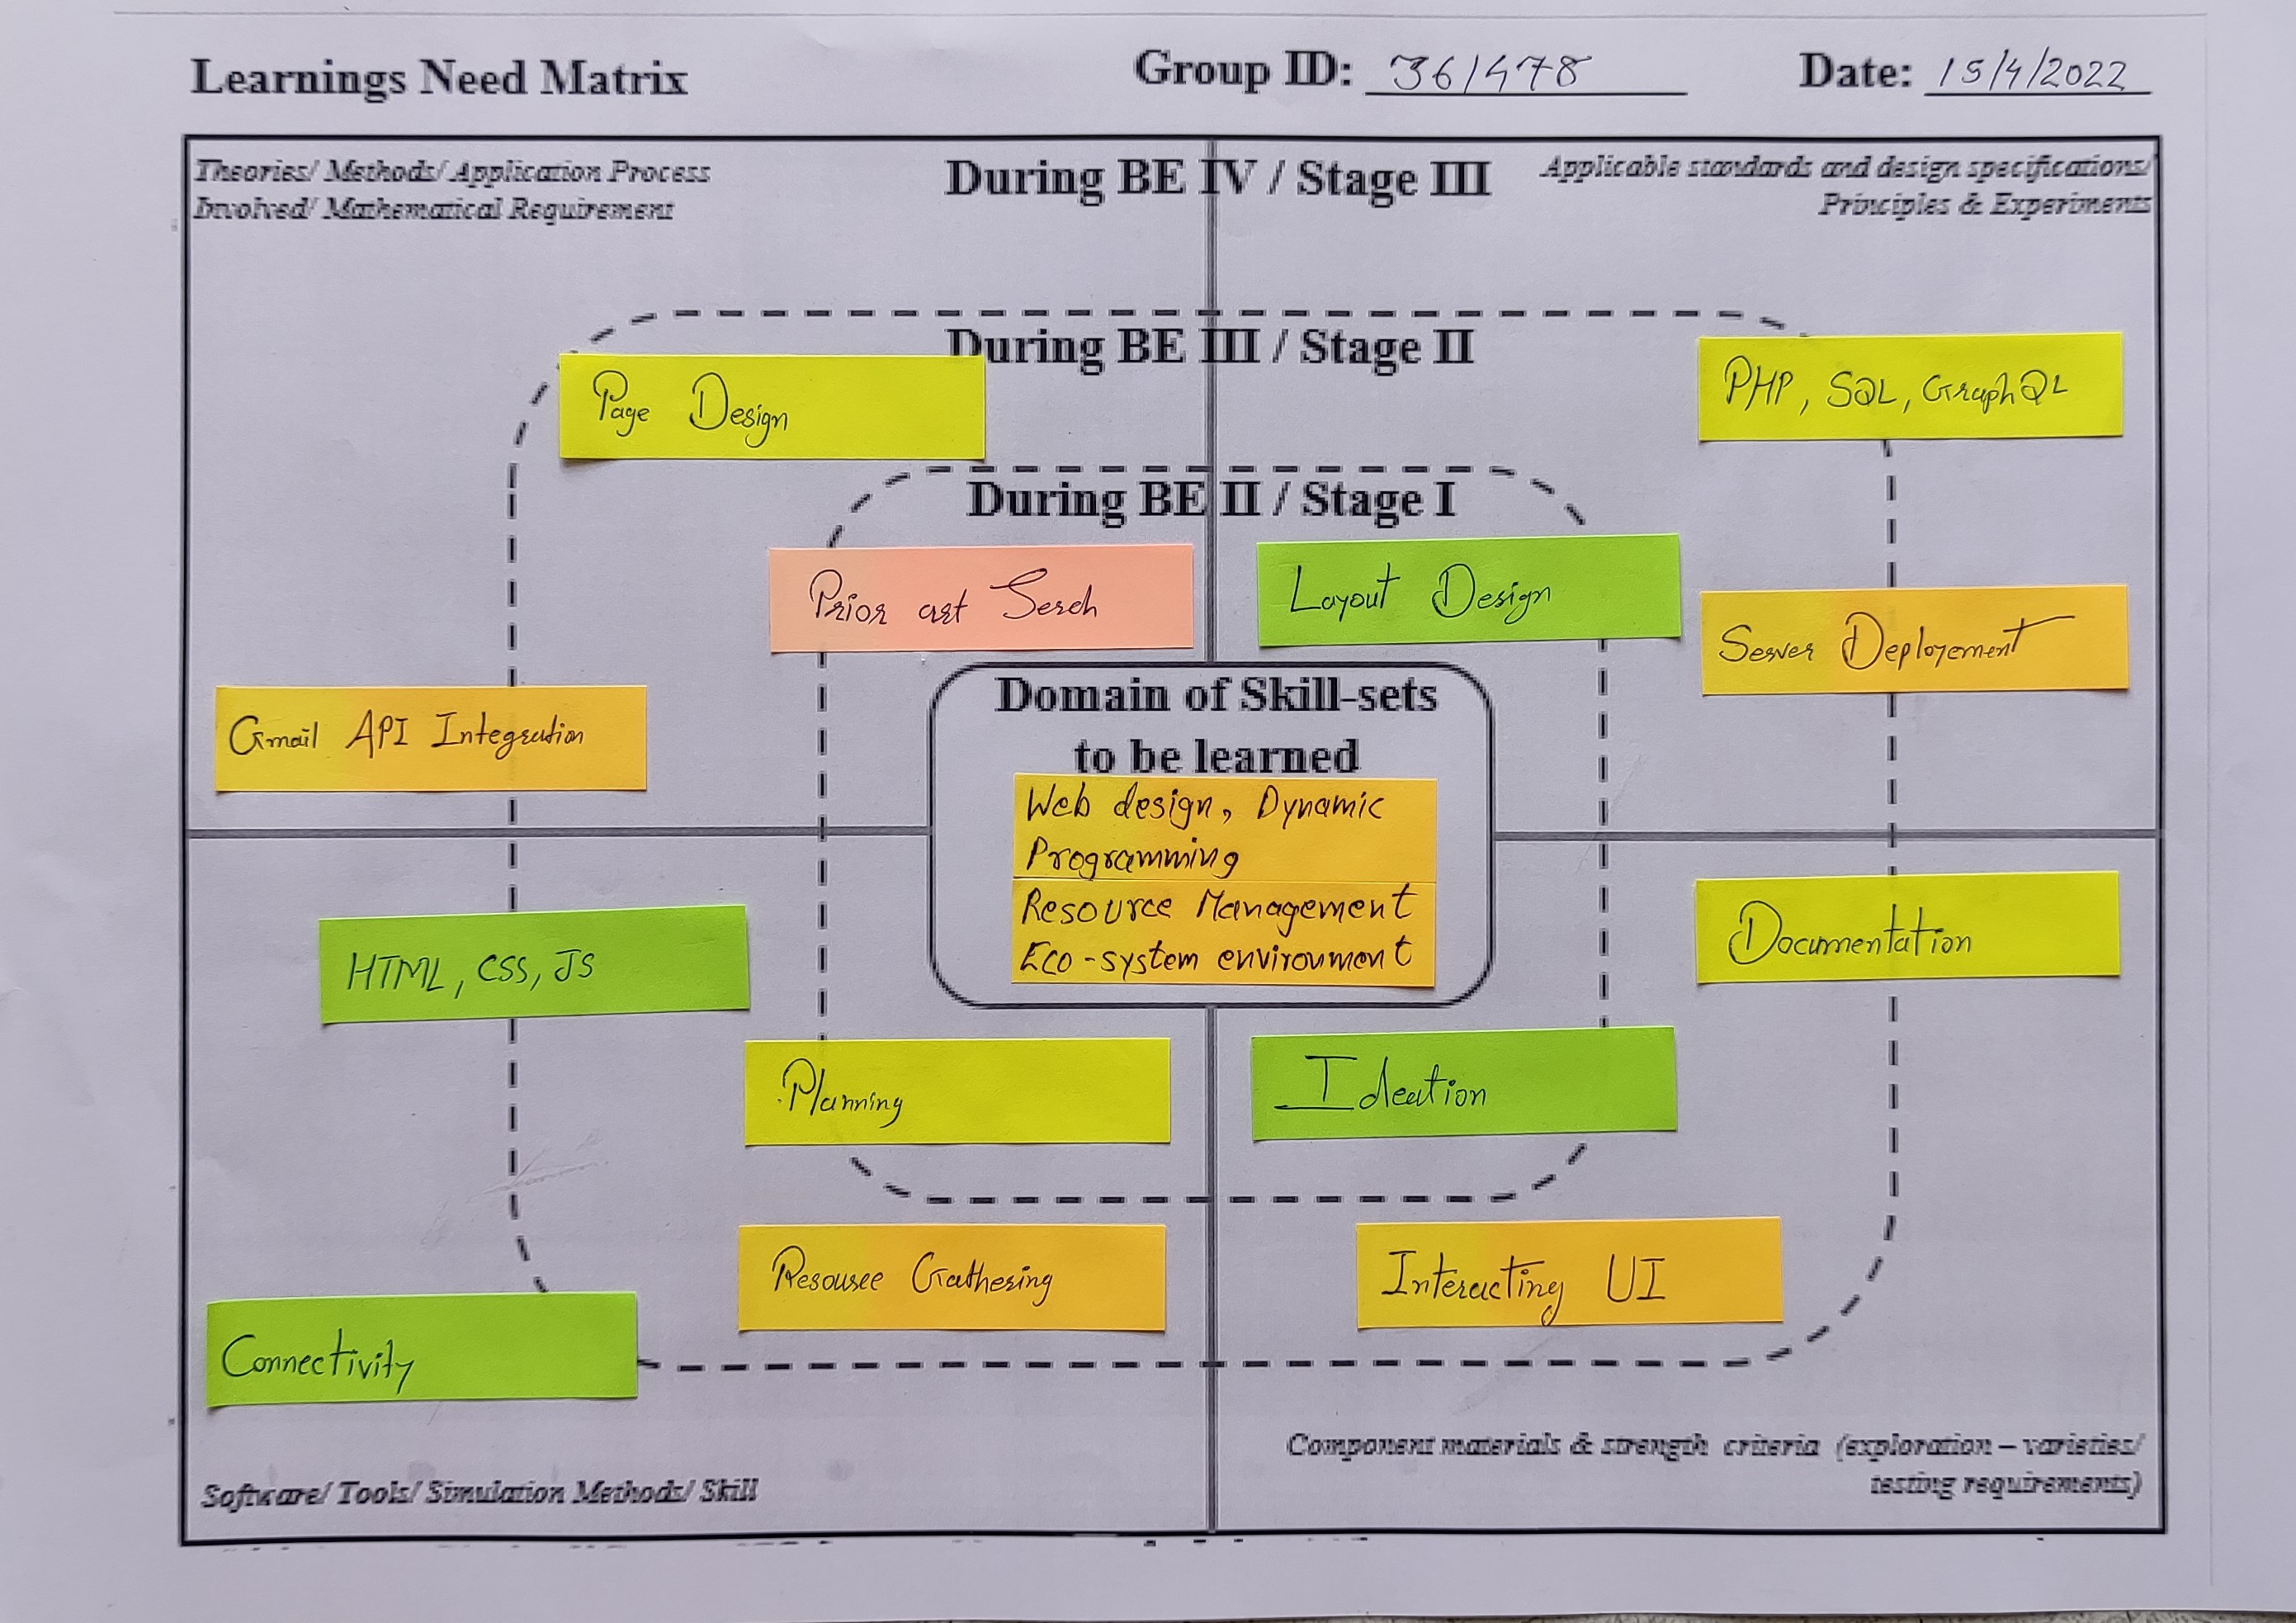 Learnings Need Matrix
Group ID: 36/478
Date: 15/4/2022
Theories/ Methods/ Application Process
Involved/ Mathematical Requirement
During BE IV / Stage III
Applicable standards and design specifications/
Principles & Experiments
During BE III / Stage II
Page Design
PHP, SQL, GraphQL
During BE II / Stage I
Prior art Serch
Layout Design
Server Deployement
Gmail API Integration
Domain of Skill-sets
to be learned
Web design, Dynamic
Programming
Resource Management
Eco-system environment
HTML, CSS, JS
Documentation
Planning
Ideation
Resource Gathering
Interacting UI
Connectivity
Component materials & strength criteria (exploration – varieties/
testing requirements)
Software/ Tools/ Simulation Methods/ Skill